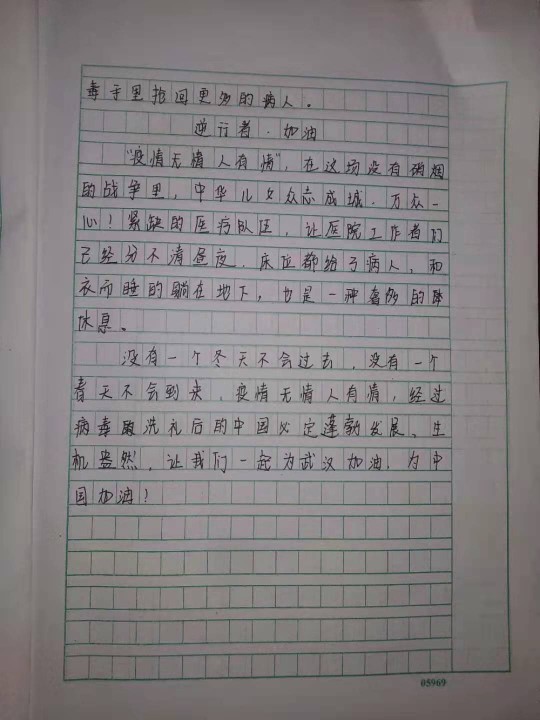 毒手里抢回更多的病人。
逆行者·加油
"疫情无情人有情",在这场没有硝烟
的战争里,中华儿女众志成城.万众一
心!紧缺的医疗队伍,让医院工作者们
已经分不清昼夜.床位都给了病人,和
衣而睡的躺在地下,也是一种奢侈的
休息。
没有一个冬天不会过去,没有一个
春天不会到来.疫情无情人有情,经过
病毒洗礼后的中国必定蓬勃发展、生
机盎然,让我们一起为武汉加油.为中
国加油!
05969